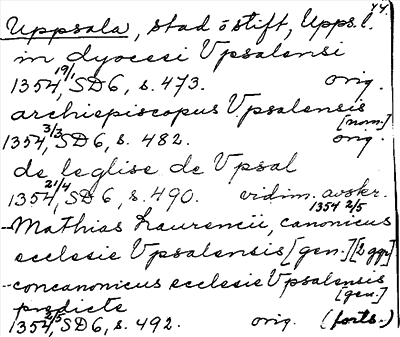 44.
Uppsala, stad o stift, Upps. l.
in dyocesi Vpsalensi
1354 19/1, SD 6, s. 473. orig.
archiepiscopus Vpsalensis
[nom.]
1354 3/3, SD 6, s. 482. orig.
de leglise de Vpsal
1354 21/4, SD 6, s. 490. vidim. avskr.
1354 2/5
-Mathias Laurencii, canonicus
ecclesie Vpsalensis [gen.] [2 ggr]
-concanonicus ecclesie Vpsalensis
[gen.]
predicte
1354 2/5, SD 6, s. 492. orig. (forts.)